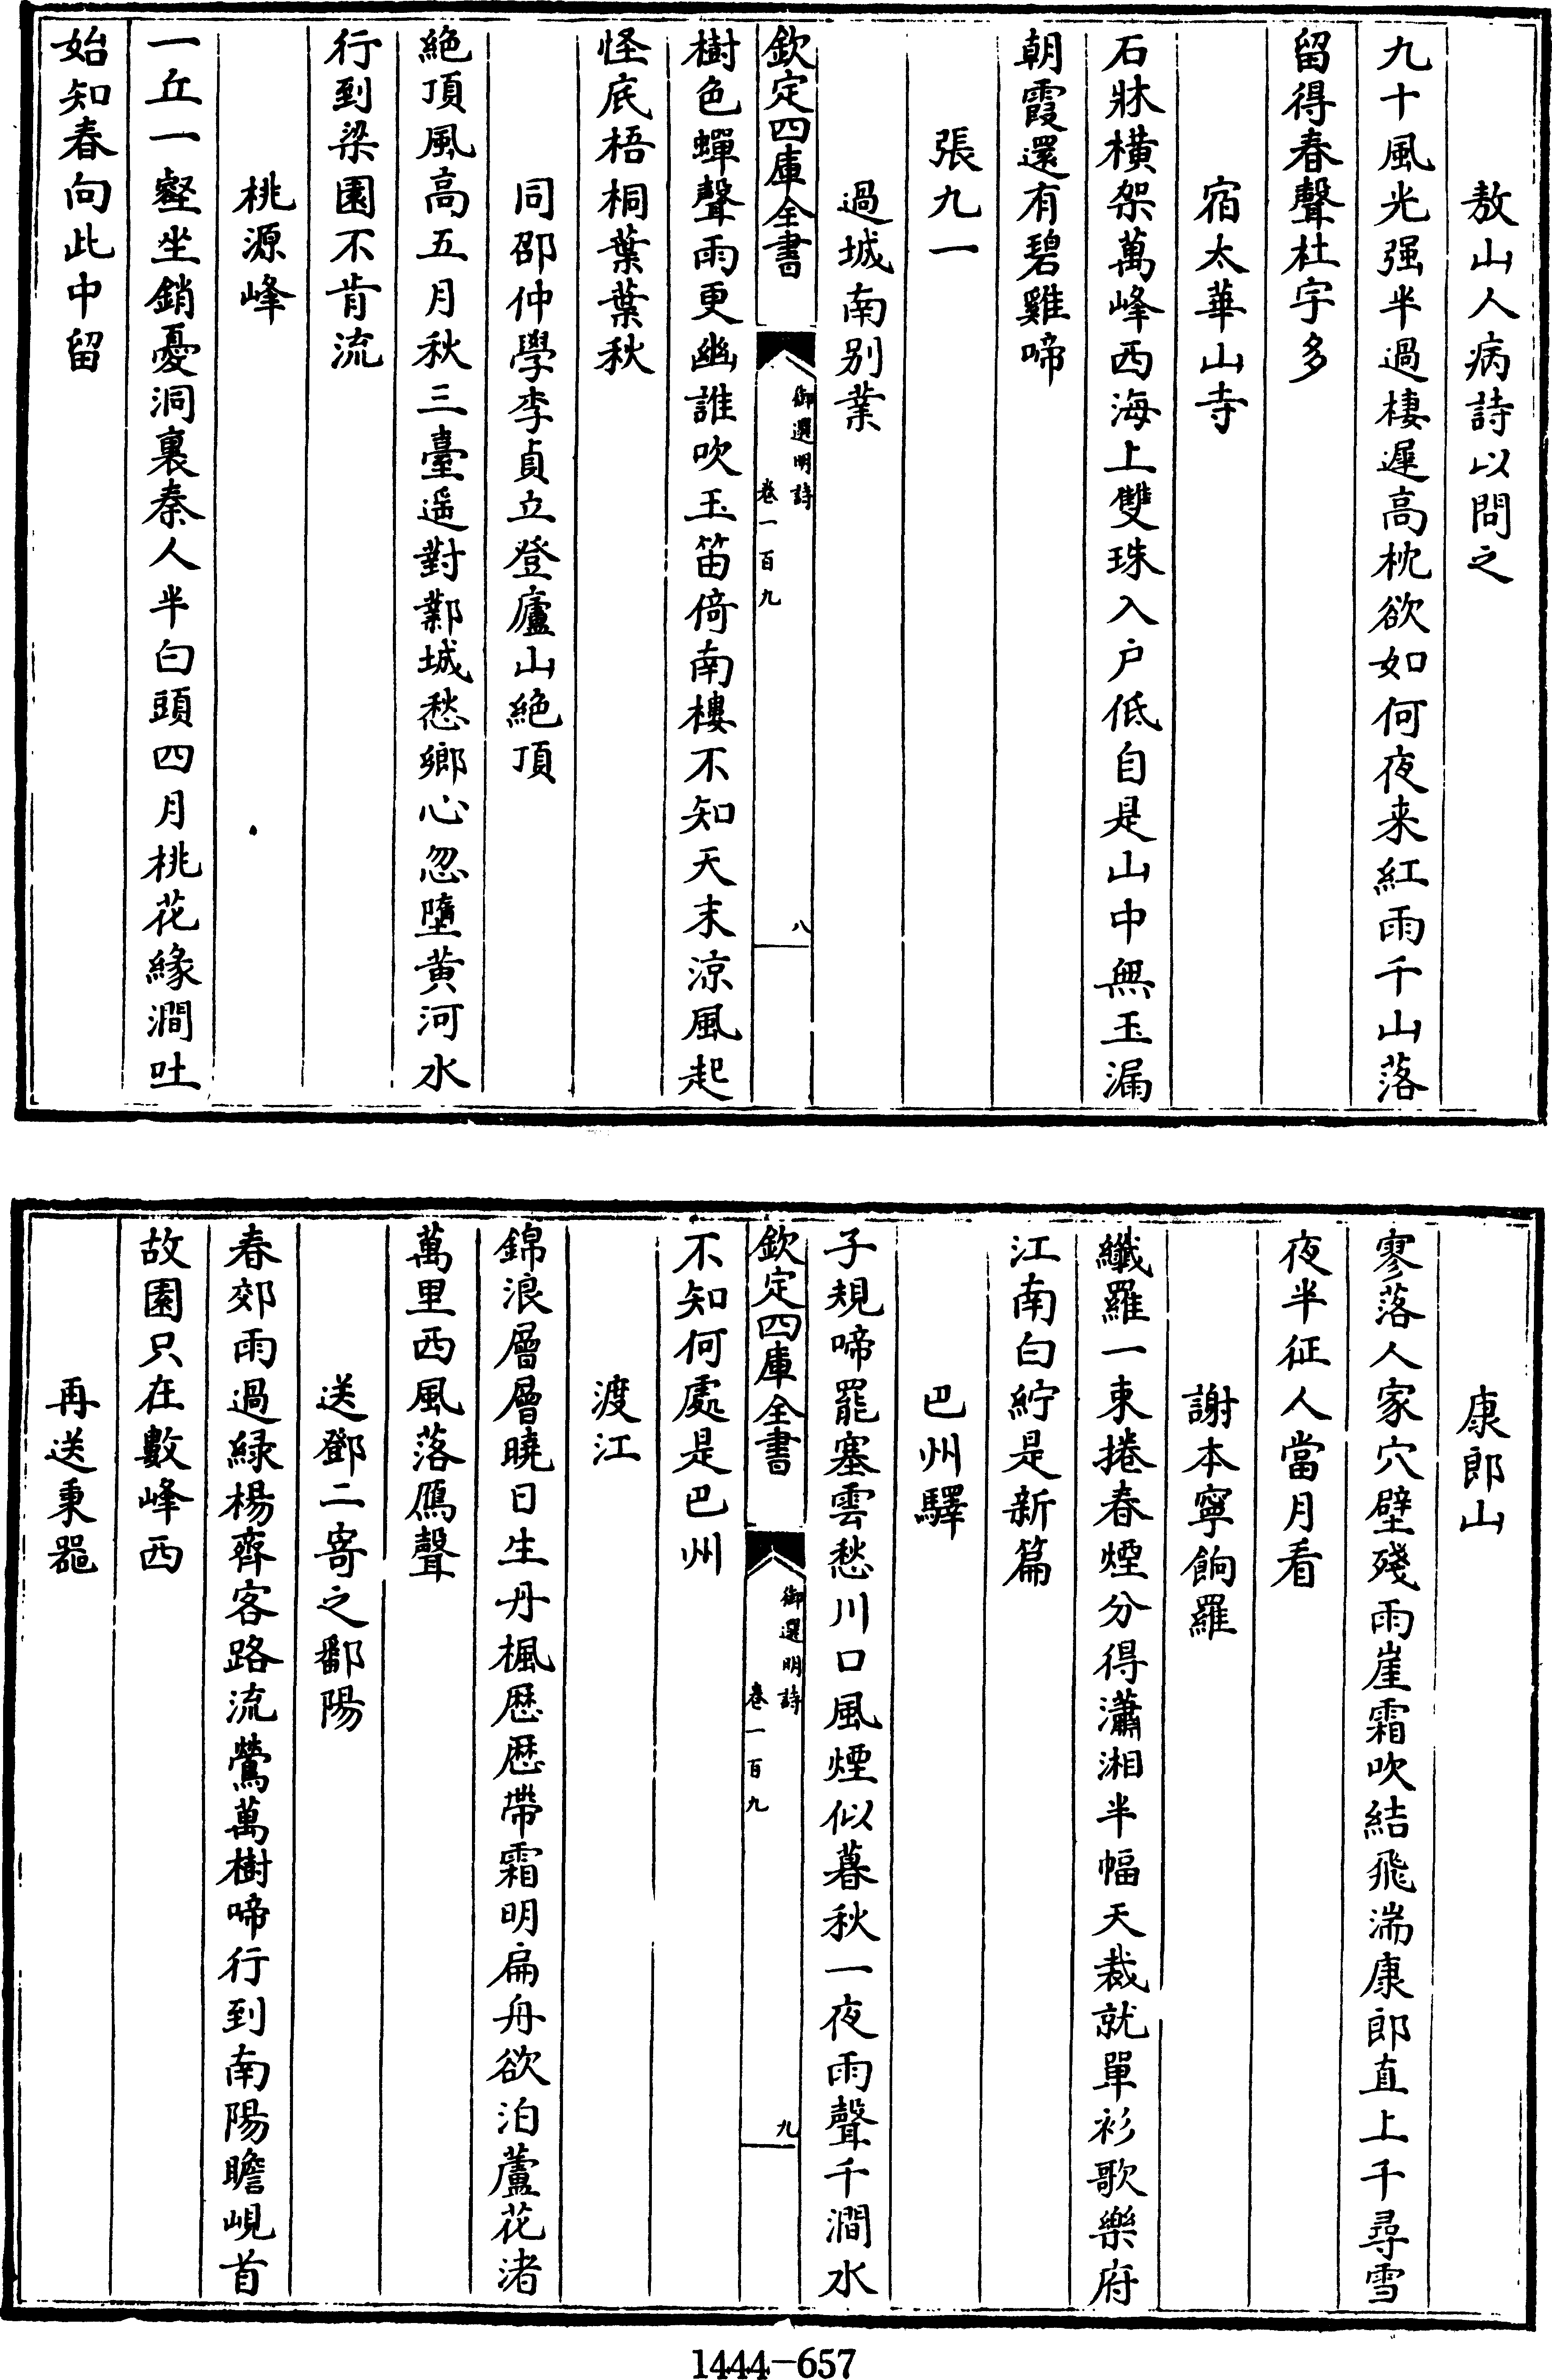 敖山人病詩以問之
九十風光强半過棲遲高枕欲如何夜来紅雨千山落
留得春聲杜宇多
宿太華山寺
石牀横架萬峰西海上雙珠入户低自是山中無玉漏
朝霞還有碧雞啼
張九一
過城南别業
欽定四庫全書
御選明詩
卷一百九
八
樹色蟬聲雨更幽誰吹玉笛倚南樓不知天末涼風起
怪底梧桐葉葉秋
同邵仲學李貞立登廬山絶頂
絶頂風高五月秋三臺遥對鄴城愁鄉心忽墮黄河水
行到梁園不肯流
桃源峰
一丘一壑坐銷憂洞裏秦人半白頭四月桃花緣澗吐
始知春向此中留
康郎山
寥落人家穴壁殘雨崖霜吹結飛湍康郎直上千尋雪
夜半征人當月看
謝本寧餉羅
纖羅一束捲春煙分得瀟湘半幅天裁就單衫歌樂府
江南白紵是新篇
巴州驛
子規啼罷塞雲愁川口風煙似暮秋一夜雨聲千澗水
欽定四庫全書
御選明詩
卷一百九
九
不知何處是巴州
渡江
錦浪層層曉日生丹楓歴歴帶霜明扁舟欲泊蘆花渚
萬里西風落鴈聲
送鄧二寄之鄱陽
春郊雨過緑楊齊客路流鶯萬樹啼行到南陽瞻峴首
故園只在數峰西
再送秉器
1444-657